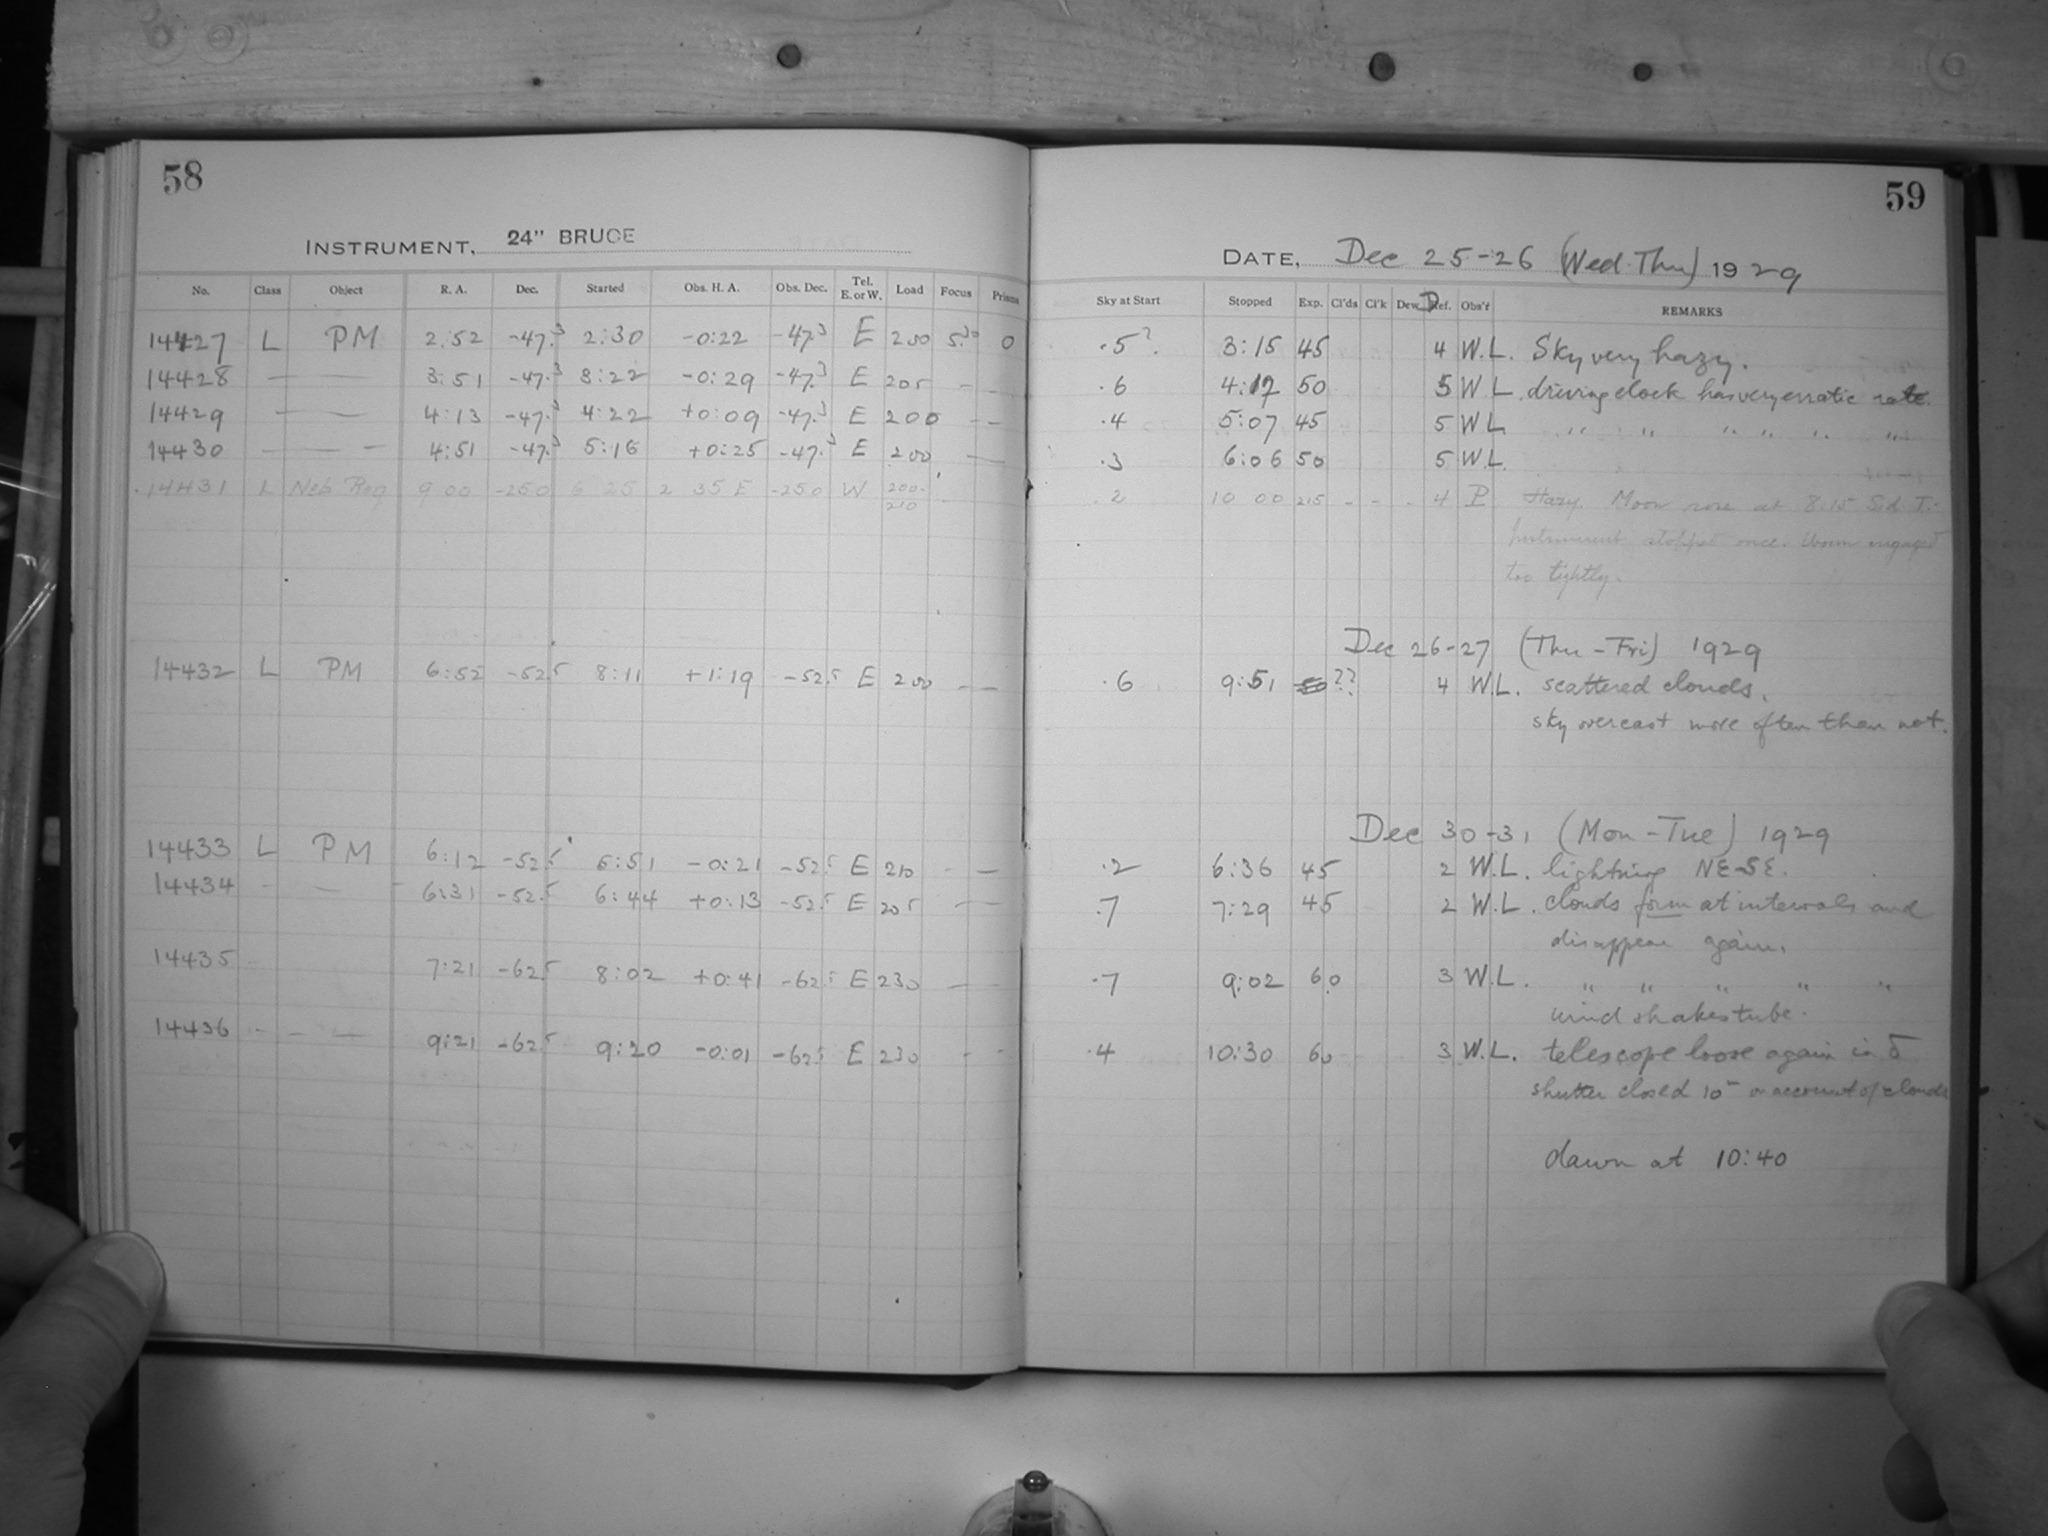 58
INSTRUMENT, 24" BRUCE
No. Class Object R. A. Dec. Started Obs. H. A. Obs. Dec. Tel. E. or W. Load Focus Prisms
14427 L PM 2:52 -47.3 2:30 -0:22 -47.3 E 200 5.30 0
14428 — — 3:51 -47.3 3:22 -0:29 -47.3 E 205 - -
14429 — — 4:13 -47.3 4:22 +0:09 -47.3 E 200 - -
14430 — — - 4:51 -47.3 5:16 +0:25 -47.3 E 200 —
14431 L Neb Reg 9 00 -250 6 25 2 35 E -250 W 200-210 -
14432 L PM 6:52 -52.5 8:11 +1:19 -52.5 E 200 - —
14433 L PM 6:12 -52.5 5:51 -0:21 -52.5 E 210 - —
14434 - — - 6:31 -52.5 6:44 +0:13 -52.5 E 205 - —
14435 - 7:21 -62.5 8:02 +0:41 -62.5 E 230 - -
14436 - - — 9:21 -62.5 9:20 -0:01 -62.5 E 230 - -
59
DATE, Dec 25-26 (Wed-Thu) 1929
Sky at Start Stopped Exp. Cl'ds Cl'k Dew Def. Obs'r REMARKS
.5? 3:15 45 4 W.L. Sky very hazy.
.6 4:12 50 5 W L. driving clock has very erratic rate.
.4 5:07 45 5 W L " " " " " "
.3 6:06 50 5 W L.
.2 10 00 215 - - - 4 P Hazy. Moon rose at 8.15 Sid. T.
Instrument stopped once. Worm engaged
too tightly.
Dec 26-27 (Thu-Fri) 1929
.6 9:51 ?? 4 W.L. scattered clouds.
sky overcast more often than not.
Dec 30-31 (Mon-Tue) 1929
.2 6:36 45 2 W.L. lightning NE-SE.
.7 7:29 45 2 W.L. clouds form at intervals and
disappear again.
.7 9:02 60 3 W.L. " " " " "
wind shakes tube.
.4 10:30 60 3 W.L. telescope loose again in δ
shutter closed 10m on account of clouds
dawn at 10:40